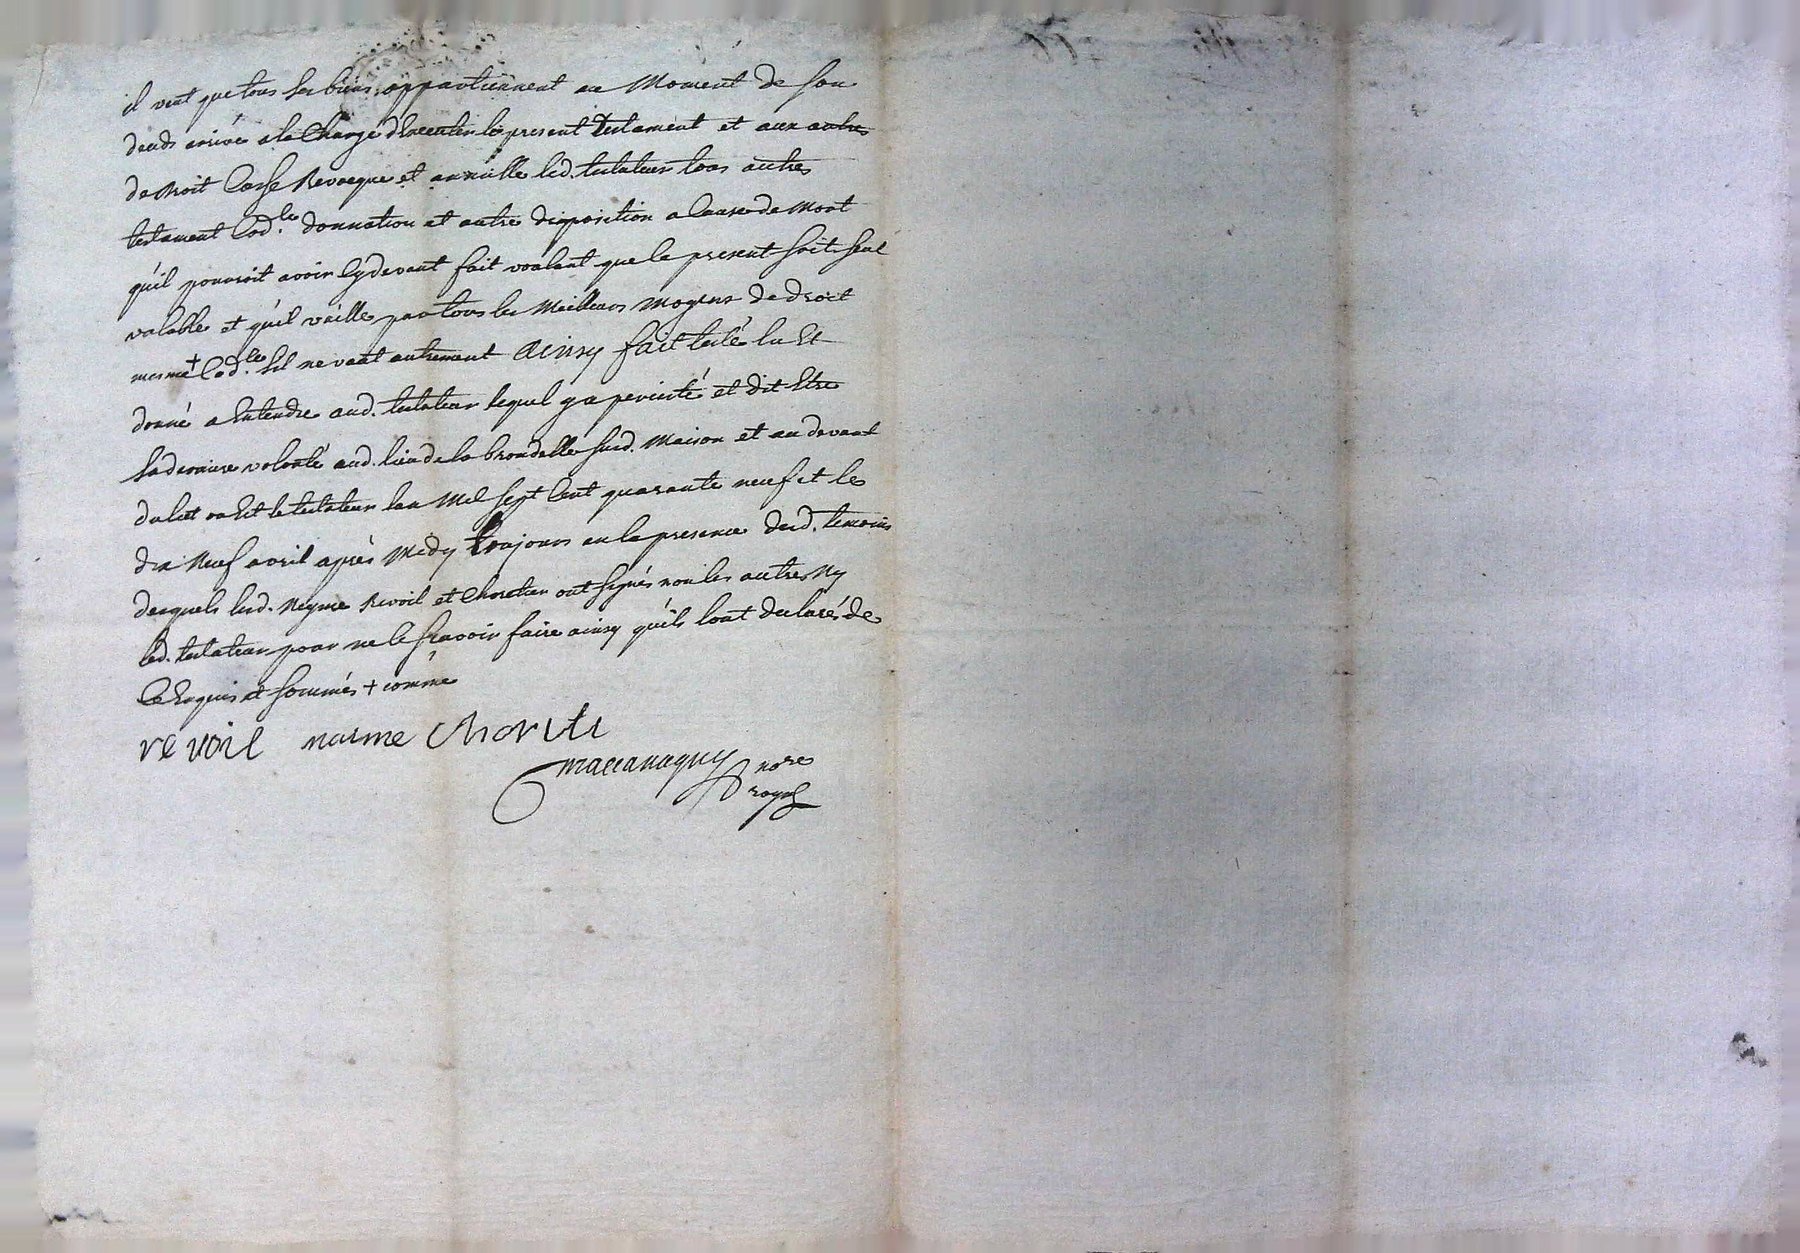 il veut que tous ses biens appartiennent au Moment de son
deceds arrivé a la Charge d'executer le present testament et aux autres
de droit Casse Revocque et annulle led. testateur tous autres
testament Cod.le donnation et autre disposition a Cause de Mort
qu'il pourroit avoir Cydevant fait voulant que le present soit seul
valable et qu'il vaille par tous les Meilleurs moyens de droit
mesme + Cod.le s'il ne vaut autrement Ainsy fait testé lu Et
donné a Entendre aud. testateur lequel y a persisté et dit Etre
sa derniere volonté aud. lieu de la brondelle susd. Maison et au devant
du lict ou Est le testateur lan Mil sept Cent quarante neuf et le
dix Neuf avril après Midy toujours en la presence desd. temoins
desquels lesd. Neyme Revoil et Choretier ont signés non les autres Ny
led. testateur pour ne le sçavoir faire ainsy qu'ils l'ont declarés de
Ce Enquis et sommés + comme
revoil naime
nore
royal